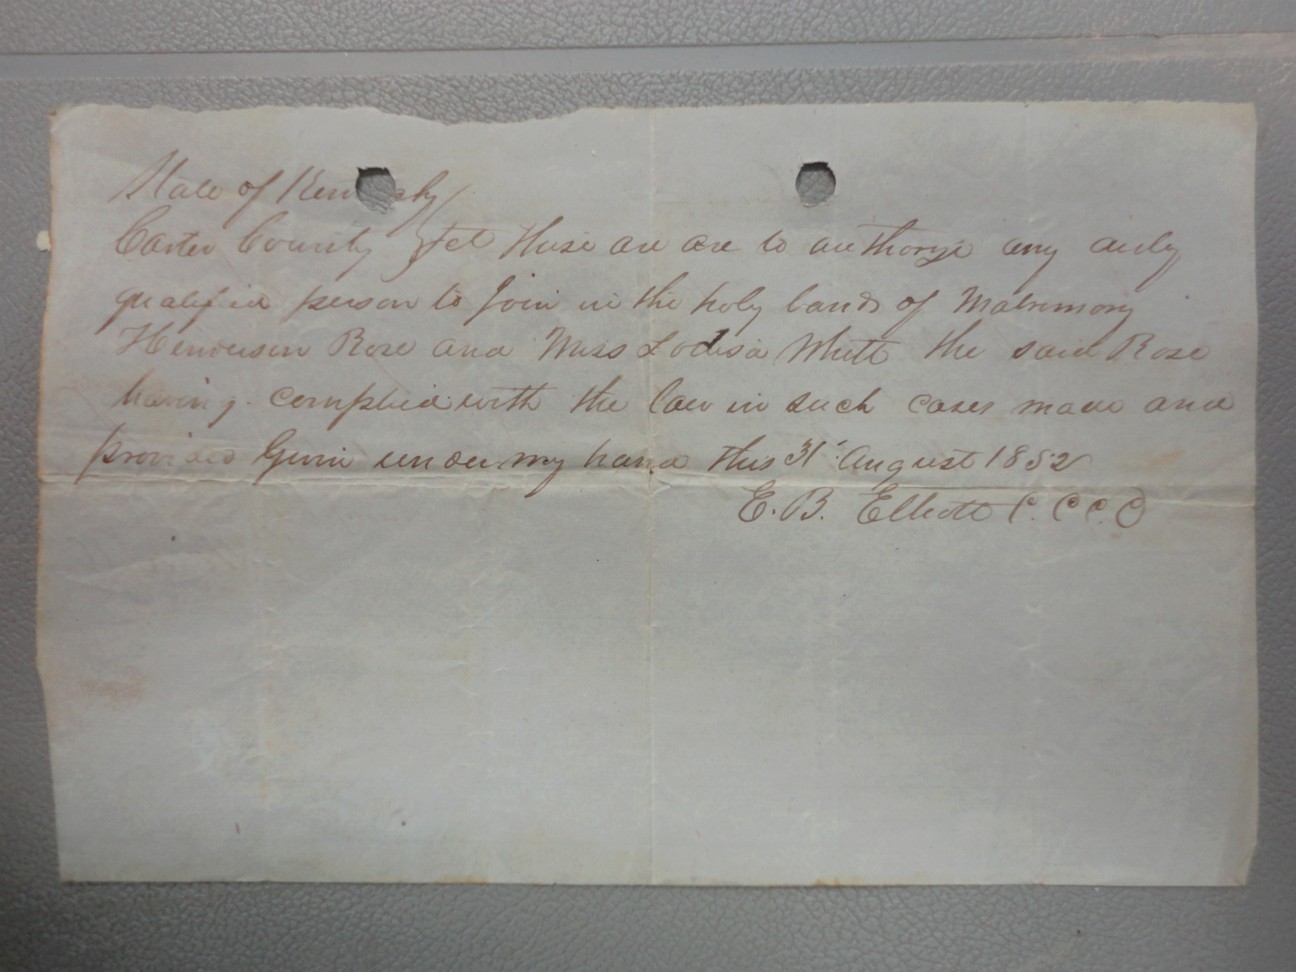 State of Kentucky
Carter County } Sct These are are to authorize any duly
qualified person to Join in the holy bands of Matrimony
Henderson Rose and Miss Lodisa Whitt the said Rose
having complied with the law in such cases made and
provided Given under my hand this 31st August 1852
E. B. Elliott C. C C. C